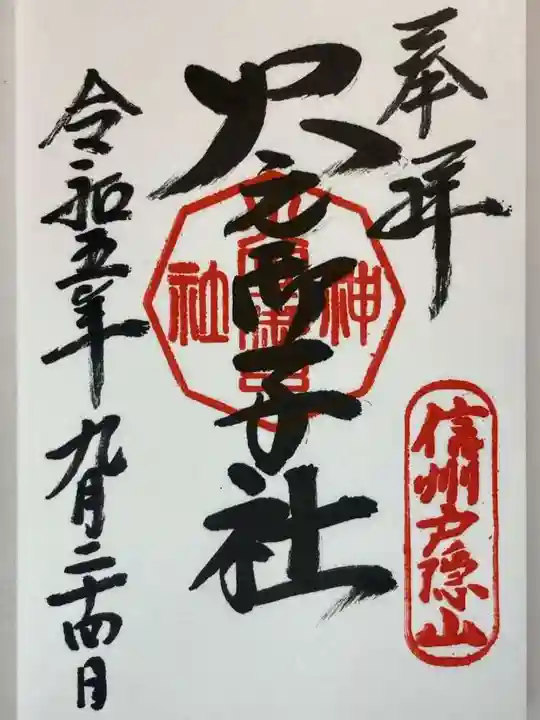 奉拝
信州戸隠山
火之御子社
神
社
令和五年九月二十四日